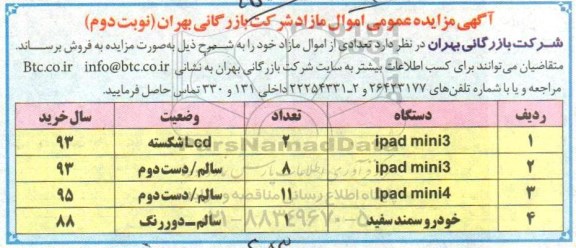 آگهی مزایده عمومی اموال مازاد شرکت بازرگانی بهران (نوبت دوم)
شرکت بازرگانی بهران در نظر دارد تعدادی از اموال مازاد خود را به شـــرح ذیل به‌صورت مزایده به فروش برساند.
متقاضیان می‌توانند برای کسب اطلاعات بیشتر به سایت شرکت بازرگانی بهران به نشانی Btc.co.ir info@btc.co.ir
مراجعه و یا با شماره تلفن‌های ۲۶۴۲۳۱۷۷ و ۲ـ۲۲۲۵۴۳۳۱ داخلی ۱۳۱ و ۳۳۰ تماس حاصل فرمایید.
ردیف دستگاه تعداد وضعیت سال خرید
۱ ipad mini3 ۲ Lcd شکسته ۹۳
۲ ipad mini3 ۸ سالم/دست‌دوم ۹۳
۳ Ipad mini4 ۱۱ سالم/دست‌دوم ۹۵
۴ خودرو سمند سفید ۱ سالم ـ دوررنگ ۸۸
ParsNamadData
۰۲۱-۸۸۳۴۹۶۷۰-۵